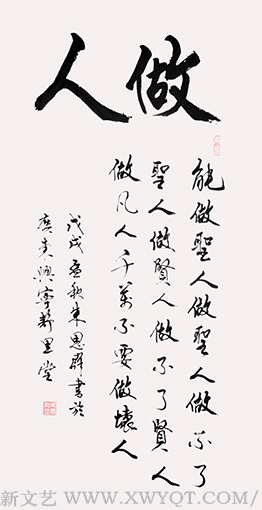 做人
能做聖人做聖人做不了
聖人做賢人做不了賢人
做凡人千萬不要做壞人
戊戌孟秋朱思群書於
廣東興寧新里堂
新文艺 WWW.XWYQT.COM/